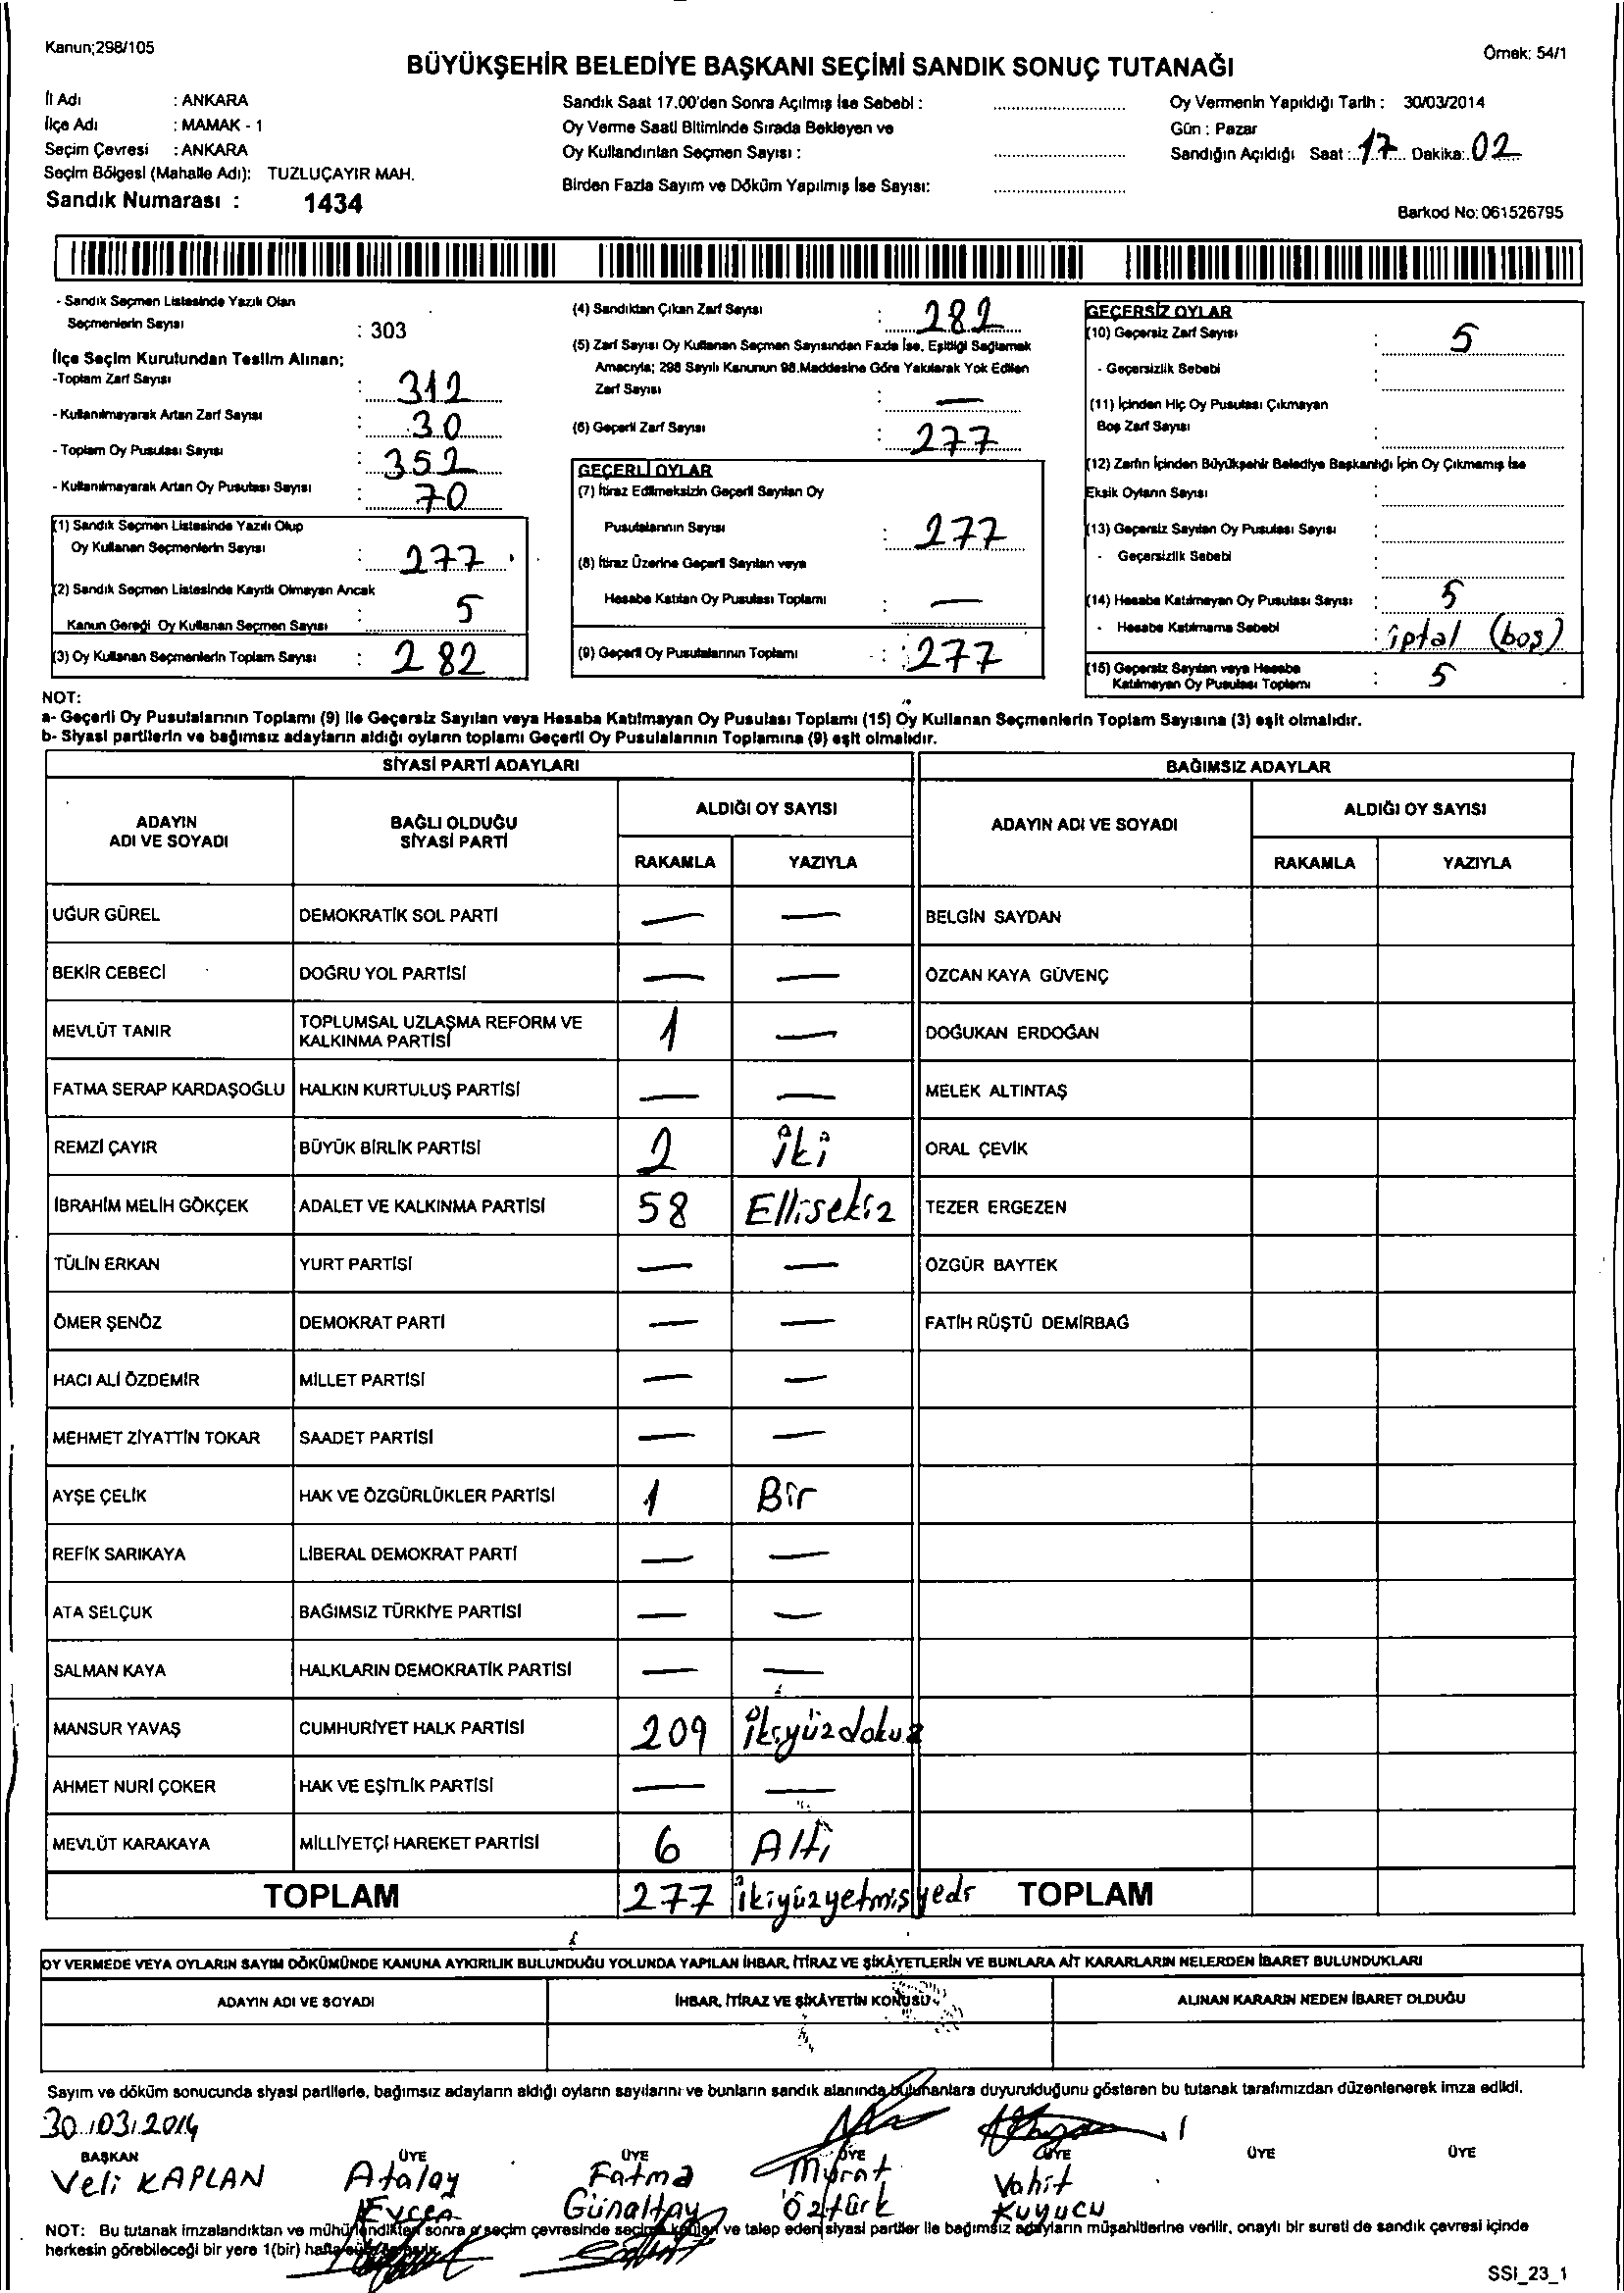 Kanun;298/105
Örnek: 54/1
BÜYÜKŞEHİR BELEDİYE BAŞKANI SEÇİMİ SANDIK SONUÇ TUTANAĞI
İl Adı : ANKARA
İlçe Adı : MAMAK - 1
Seçim Çevresi : ANKARA
Seçim Bölgesi (Mahalle Adı): TUZLUÇAYIR MAH.
Sandık Numarası : 1434
Sandık Saat 17.00'den Sonra Açılmış İse Sebebi :
Oy Verme Saati Bitiminde Sırada Bekleyen ve
Oy Kullandırılan Seçmen Sayısı :
Birden Fazla Sayım ve Döküm Yapılmış İse Sayısı:
Oy Vermenin Yapıldığı Tarih : 30/03/2014
Gün : Pazar
Sandığın Açıldığı Saat : 17 Dakika: 02
Barkod No: 061526795
- Sandık Seçmen Listesinde Yazılı Olan
Seçmenlerin Sayısı : 303
İlçe Seçim Kurulundan Teslim Alınan;
-Toplam Zarf Sayısı : 312
- Kullanılmayarak Artan Zarf Sayısı : 30
- Toplam Oy Pusulası Sayısı : 352
- Kullanılmayarak Artan Oy Pusulası Sayısı : 70
(1) Sandık Seçmen Listesinde Yazılı Olup
Oy Kullanan Seçmenlerin Sayısı : 277
(2) Sandık Seçmen Listesinde Kayıtlı Olmayan Ancak
Kanun Gereği Oy Kullanan Seçmen Sayısı : 5
(3) Oy Kullanan Seçmenlerin Toplam Sayısı : 282
(4) Sandıktan Çıkan Zarf Sayısı : 282
(5) Zarf Sayısı Oy Kullanan Seçmen Sayısından Fazla İse, Eşitliği Sağlamak
Amacıyla; 298 Sayılı Kanunun 98.Maddesine Göre Yakılarak Yok Edilen
Zarf Sayısı : —
(6) Geçerli Zarf Sayısı : 277
GEÇERLİ OYLAR
(7) İtiraz Edilmeksizin Geçerli Sayılan Oy
Pusulalarının Sayısı : 277
(8) İtiraz Üzerine Geçerli Sayılan veya
Hesaba Katılan Oy Pusulası Toplamı : —
(9) Geçerli Oy Pusulalarının Toplamı : 277
GEÇERSİZ OYLAR
(10) Geçersiz Zarf Sayısı : 5
- Geçersizlik Sebebi :
(11) İçinden Hiç Oy Pusulası Çıkmayan
Boş Zarf Sayısı :
(12) Zarfın İçinden Büyükşehir Belediye Başkanlığı İçin Oy Çıkmamış İse
Eksik Oyların Sayısı :
(13) Geçersiz Sayılan Oy Pusulası Sayısı :
- Geçersizlik Sebebi :
(14) Hesaba Katılmayan Oy Pusulası Sayısı : 5
- Hesaba Katılmama Sebebi : iptal (boş)
(15) Geçersiz Sayılan veya Hesaba
Katılmayan Oy Pusulası Toplamı : 5
NOT:
a- Geçerli Oy Pusulalarının Toplamı (9) ile Geçersiz Sayılan veya Hesaba Katılmayan Oy Pusulası Toplamı (15) Oy Kullanan Seçmenlerin Toplam Sayısına (3) eşit olmalıdır.
b- Siyasi partilerin ve bağımsız adayların aldığı oyların toplamı Geçerli Oy Pusulalarının Toplamına (9) eşit olmalıdır.
SİYASİ PARTİ ADAYLARI BAĞIMSIZ ADAYLAR
ADAYIN ADI VE SOYADI BAĞLI OLDUĞU SİYASİ PARTİ ALDIĞI OY SAYISI ADAYIN ADI VE SOYADI ALDIĞI OY SAYISI
RAKAMLA YAZIYLA RAKAMLA YAZIYLA
UĞUR GÜREL DEMOKRATİK SOL PARTİ — — BELGİN SAYDAN
BEKİR CEBECİ DOĞRU YOL PARTİSİ — — ÖZCAN KAYA GÜVENÇ
MEVLÜT TANIR TOPLUMSAL UZLAŞMA REFORM VE KALKINMA PARTİSİ 1 — DOĞUKAN ERDOĞAN
FATMA SERAP KARDAŞOĞLU HALKIN KURTULUŞ PARTİSİ — — MELEK ALTINTAŞ
REMZİ ÇAYIR BÜYÜK BİRLİK PARTİSİ 2 iki ORAL ÇEVİK
İBRAHİM MELİH GÖKÇEK ADALET VE KALKINMA PARTİSİ 58 Ellisekiz TEZER ERGEZEN
TÜLİN ERKAN YURT PARTİSİ — — ÖZGÜR BAYTEK
ÖMER ŞENÖZ DEMOKRAT PARTİ — — FATİH RÜŞTÜ DEMİRBAĞ
HACI ALİ ÖZDEMİR MİLLET PARTİSİ — —
MEHMET ZİYATTİN TOKAR SAADET PARTİSİ — —
AYŞE ÇELİK HAK VE ÖZGÜRLÜKLER PARTİSİ 1 Bir
REFİK SARIKAYA LİBERAL DEMOKRAT PARTİ — —
ATA SELÇUK BAĞIMSIZ TÜRKİYE PARTİSİ — —
SALMAN KAYA HALKLARIN DEMOKRATİK PARTİSİ — —
MANSUR YAVAŞ CUMHURİYET HALK PARTİSİ 209 ikiyüzdokuz
AHMET NURİ ÇOKER HAK VE EŞİTLİK PARTİSİ — —
MEVLÜT KARAKAYA MİLLİYETÇİ HAREKET PARTİSİ 6 Altı
TOPLAM 277 ikiyüzyetmişyedi TOPLAM
OY VERMEDE VEYA OYLARIN SAYIM DÖKÜMÜNDE KANUNA AYKIRILIK BULUNDUĞU YOLUNDA YAPILAN İHBAR, İTİRAZ VE ŞİKÂYETLERİN VE BUNLARA AİT KARARLARIN NELERDEN İBARET BULUNDUKLARI
ADAYIN ADI VE SOYADI İHBAR, İTİRAZ VE ŞİKÂYETİN KONUSU ALINAN KARARIN NEDEN İBARET OLDUĞU
Sayım ve döküm sonucunda siyasi partilerle, bağımsız adayların aldığı oyların sayılarını ve bunların sandık alanında bulunanlara duyurulduğunu gösteren bu tutanak tarafımızdan düzenlenerek imza edildi.
30/03/2014
BAŞKAN ÜYE ÜYE ÜYE ÜYE ÜYE ÜYE
Veli KAPLAN Atalay Fatma Murat Vahit
Günaltay Öztürk Kuyucu
NOT: Bu tutanak imzalandıktan ve mühürlendikten sonra seçim çevresinde seçime katılan ve talep eden siyasi partiler ile bağımsız adayların müşahitlerine verilir, onaylı bir sureti de sandık çevresi içinde
herkesin görebileceği bir yere 1(bir) hafta
SSI_23_1